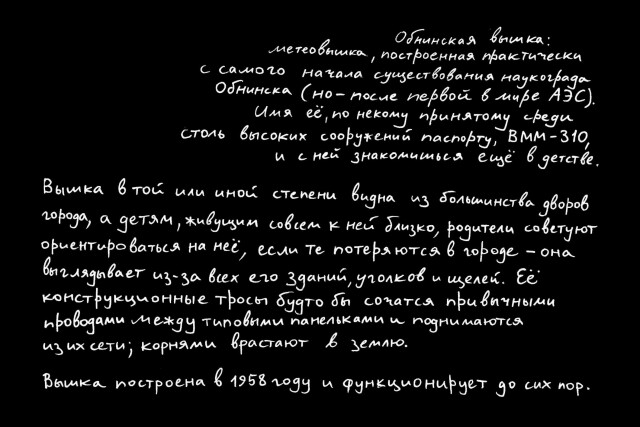 Обнинская вышка:
метеовышка, построенная практически
с самого начала существования наукограда
Обнинска (но - после первой в мире АЭС).
Имя её, по некому принятому среди
столь высоких сооружений паспорту, ВММ-310,
и с ней знакомишься ещё в детстве.
Вышка в той или иной степени видна из большинства дворов
города, а детям, живущим совсем к ней близко, родители советуют
ориентироваться на неё, если те потеряются в городе - она
выглядывает из-за всех его зданий, уголков и щелей. Её
конструкционные тросы будто бы сочатся привычными
проводами между типовыми панельками и поднимаются
из их сети; корнями врастают в землю.
Вышка построена в 1958 году и функционирует до сих пор.